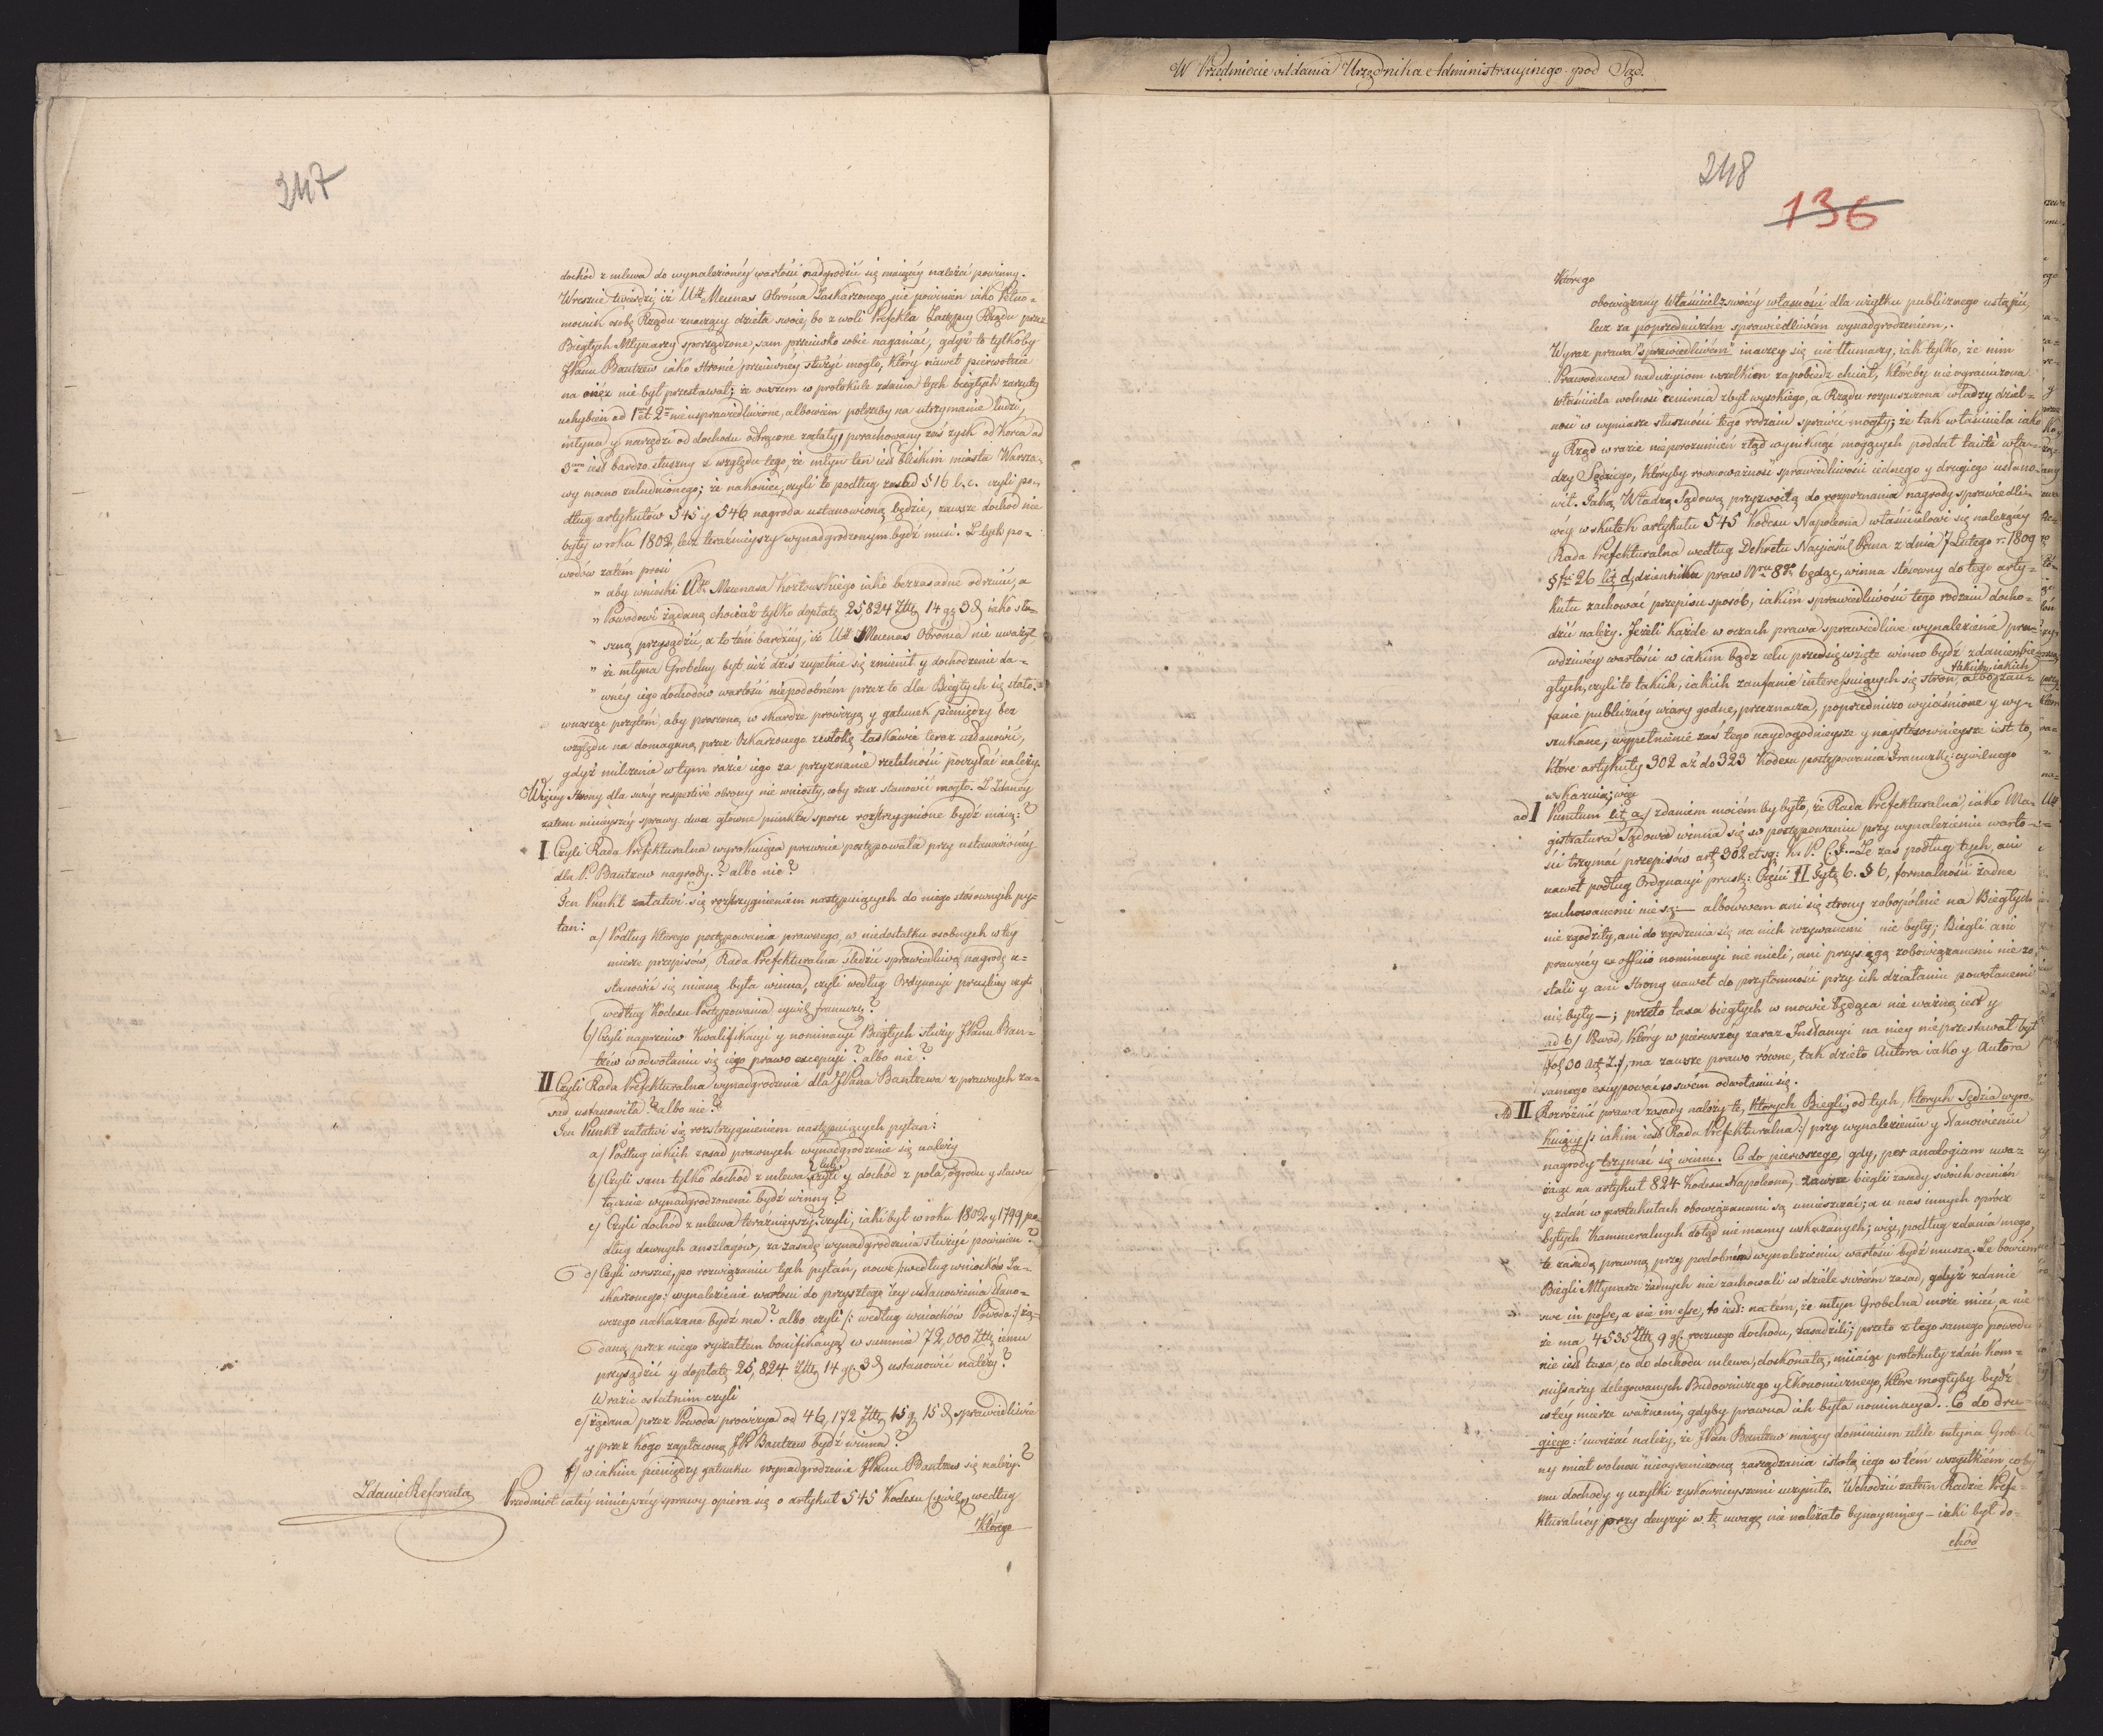 247
dochód z mlewa do wynalezionéy wartości nadgrodzić się maiącéy należéć powinny.
Wreszcie twierdzi, iż Utt Mecenas Obrońca Zaskarzonego nie powinien iako Pełno=
mocnik osobę Rządu znaczący dzieła swoie, bo z woli Prefekta Zastępcy Rządu przez
Biegłych Młynarzy sporządzone, sam przeciwko sobie naganiać, gdyż to tylkoby
JPanu Bantzew iako stronie przeciwnéy służyć mogło, który nawet pierwotnie
na onéż nie był przestawał; że owszem w protokule zdania tych biegłych zarzuty
uchybień ad 1um et 2um nieusprawiedliwione, albowiem potrzeby na utrzymanie ludzi,
młyna y narzędzi od dochodu odtrącone zostały, porachowany zaś zysk od Korca ad
3um iest bardzo słuszny z względu tego, że młyn ten iest bliskim miasta Warsza=
wy mocno zaludnionego; że nakoniec, czyli to podług zasad § 16 l. c. czyli po=
dług artykułów 545 y 546 nagroda ustanowioną będzie, zawsze dochód nie
były w roku 1802, lecz teraźnieyszy wynadgrodzonym bydź musi. Z tych po=
wodów zatém prosi
" aby wnioski Utto Mecenasa Kozłowskiego iako bezzasadne odrzucić, a
" Powodowi żądaną chociaż tylko dopłatę 25824 Złłt 14 gr 3 d iako słu=
" szną przysądzić, a to tém bardziéy, iż Utt Mecenas Obrońca nie uważył
" że młyna Grobelny był iuż dziś zupełnie się zmienił y dochodzenie da=
" wney iego dochodów wartości niepodobném przez to dla Biegłych się stało.
wnosząc przytém, aby proszoną w skardze prowizyą y gatunek pieniędzy bez
względu na domaganą przez Oskarżonego zwłokę łaskawie teraz ustanowić,
gdyż milczenie w tym razie iego za przyznanie rzetelności poczytać należy.
Więcéy Strony dla swéy respective obrony nie wniosły, coby rzecz stanowić mogło. Z Zdanéy
zatem ninieyszéy sprawy dwa główne punkta sporu rozstrzygnione bydź maią:
I Czyli Rada Prefekturalna wyrokuiąca prawnie postępowała przy ustanowionéy
dla P. Bantzew nagrody? albo nie?
Ten Punkt załatwi się rozstrzygnieniem następuiących do niego stósownych py=
tań:
a/ Podług którego postępowania prawnego, w niedostatku osobnych w téy
mierze przepisów, Rada Prefekturalna śledzić sprawiedliwą nagrodę u=
stanowić się mianą była winna, czyli według Ordynacyi pruskiéy czyli
według Kodexu Postępowania cywil: francuzk?
b/ Czyli naprzeciw kwalifikacyi y nominacyi Biegłych służy JPanu Ban=
tzew w odwołaniu się iego prawo excepcyi? albo nie?
II Czyli Rada Prefekturalna wynadgrodzenie dla JPana Bantzewa z prawnych za=
sad ustanowiła? albo nie?
Ten Punkt załatwi się rozstrzygnieniem następuiących pytań:
a/ Podług iakich zasad prawnych wynadgrodzenie się należy
b/ Czyli sam tylko dochód z mlewa? czyli y dochód z pola, ogrodu y stawu
łącznie wynadgrodzonemi bydź winny?
c/ Czyli dochód z mlewa teraźnieyszy? czyli, iaki był w roku 1802 y 1799 po=
dług dawnych anszlagów, za zasadę wynadgrodzenia służyć powinien?
d/ Czyli wreszcie, po rozwiązaniu tych pytań, nowe /według wniosków Za=
skarzonego:/ wynalezienie wartości do przyszłego iéy ustanowienia stano=
wczego nakazane bydź ma? albo czyli /: według wniosków Powoda:/ żą=
daną przez niego ryczałtem bonifikacyą w summie 72,000 Złłt iemu
przysądzić y dopłatę 25,824 Złłt 14 gr 3 d ustanowić należy?
W razie ostatnim czyli
e/ żądana przez Powoda prowizya od 46,172 Złłt 15 gr 15 d sprawiedliwie
y przez kogo zapłaconą JP Bantzew bydź winna?
f/ w iakim pieniędzy gatunku wynadgrodzenie JPanu Bantzew się należy?
Zdanie Referenta
Przedmiot całéy ninieyszéy sprawy opiera się o artykuł 545 Kodexu Cywiln, według
Którego
W Przedmiecie oddania Urzędnika Administracyinego pod Sąd.
248
136
którego
obowiązany Właściciel z swoiéy własności dla użytku publicznego ustąpić,
lecz za poprzedniczém sprawiedliwém wynadgrodzeniem.
Wyraz prawa "sprawiedliwém" inaczey się nie tłumaczy, iak tylko, że nim
Prawodawca nadużyciom wszelkim zapobiedz chciał, któreby nieograniczona
właściciela wolność cenienia zbyt wysokiego, a Rządu rozpuszczona władzy dziel=
ność w wymiarze słuszności tego rodzaiu sprawić mogły; że tak właściciela iako
y Rząd w razie nieporozumień ztąd wyniknąć mogących poddał zaiste wła=
dzy Sędziego, któryby rownoważność sprawiedliwości iednego y drugiego ustano=
wił. Jaką Władzą Sądową przyzwoitą do rozpoznania nagrody sprawiedli=
wéy w skutek artykułu 545 Kodexu Napoleona właścicielowi się należącéy
Rada Prefekturalna według Dekretu Nayiaśn: Pana z dnia 7 Lutego r. 1809
§fu 26 lit d, dziennika praw Nru 8go będąc, winna stósowny do tego arty=
kułu zachować przepisu sposób, iakim sprawiedliwości tego rodzaiu docho=
dzić należy. Jeżeli każde w oczach prawa sprawiedliwe wynalezienie pra=
wdziwéy wartości w iakim bądz celu przedsięwzięte winno bydź zdaniem Bie=
głych, czyli to takich, iakich zaufanie interessuiących się stron, albo takich, iakich zau=
fanie publicznéy wiary godne, przeznacza, poprzedniczo wyiaśnione y wy=
szukane, wypełnienie zaś tego naydogodnieysze y naystósownieysze iest to,
które artykuły 302 aż do 323 Kodexu postępowania Francuzk: cywilnego
wskazuią; więc
ad I Punctum lit a/ zdaniem moiém by było, że Rada Prefekturalna, iako Ma=
gistratura Sądowa winna się w postępowaniu przy wynalezieniu warto=
ści trzymać przepisów art 302 et sq: K. P. C. F. Że zaś podług tych, ani
nawet podług Ordynacyi prusk: Części II Tytu 6. § 6, formalności żadne
zachowanemi nie są: — albowiem ani się strony zobopólnie na Biegłych
nie zgodziły, ani do zgodzenia się na nich wzywanemi nie były; Biegli ani
prawnéy ex officio nominacyi nie mieli, ani przysięgą zobowiązanemi nie zo=
stali y ani Strony nawet do przytomności przy ich działaniu powołanemi
nie były —; przeto taxa biegłych w mowie będąca nie ważną iest y
ad b/ Powod, który w pierwszéy zaraz Instancyi na niey nieprzestawał był
fol 30 Act I/, ma zawsze prawo równe, tak dzieło Autora iako y Autora
samego excypować w swém odwołaniu się.
Ad II Rozróżnić prawa zasady należy te, których Biegli, od tych, których Sędzia wyro
kuiący /: iakim iest Rada Prefekturalna:/ przy wynalezieniu y stanowieniu
nagrody trzymać się winni. Co do pierwszego, gdy, per analogiam uwa=
żaiąc na artykuł 824 Kodexu Napoleona, zawsze biegli zasady swoich ocenień
y zdań w protokułach obowiązanemi są umieszczać; a u nas innych oprócz
byłych Kammeralnych dotąd nie mamy wskazanych; więc, podług zdania mego,
te zasadą prawną przy podobném wynalezieniu wartości bydź muszą. Że bowiem
Biegli Młynarze żadnych nie zachowali w dziele swoiém zasad, gdyż zdanie
swe in posse, a nie in esse, to iest: na tém, że młyn Grobelna może mieć, a nie
że ma, 4535 Złłt 9 gr. rocznego dochodu, zasadzili; przeto z tego samego powodu
nie iest taxa, co do dochodu mlewa, doskonałą, miiaiąc protokuły zdań Kom=
missarzy delegowanych Budowniczego y Ekonomicznego, które mogłyby bydź
w téy mierze ważnemi, gdyby prawna ich była nominacya. Co do dru=
giego: uważać należy, że JPan Bantzew maiący dominium utile młyna Grobel
ny miał wolność nieograniczoną zarządzania istotą iego w tém wszystkiém, coby
mu dochody y użytki zyskownieyszemi uczyniło. Wchodzić zatem Radzie Prefe=
kturalnéy przy decyzyi w tę uwagę nie należało bynaymniey — iaki był do=
chód